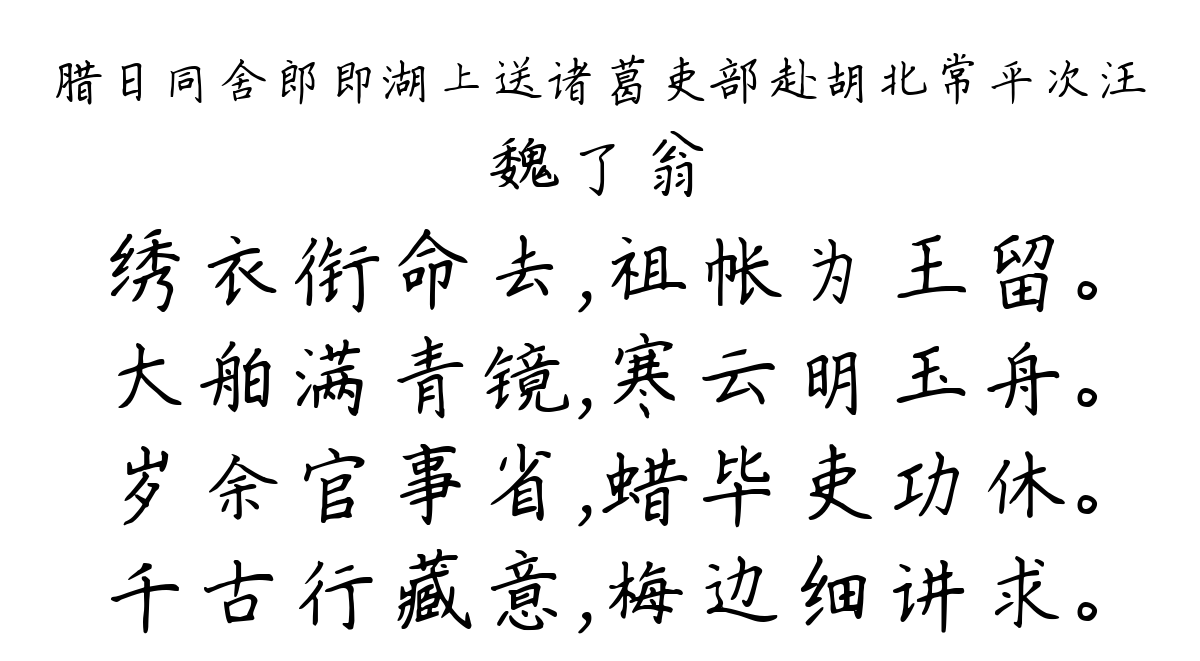 腊日同舍郎即湖上送诸葛吏部赴胡北常平次汪
魏了翁
绣衣衔命去,祖帐为王留。
大舶满青镜,寒云明玉舟。
岁余官事省,蜡毕吏功休。
千古行藏意,梅边细讲求。